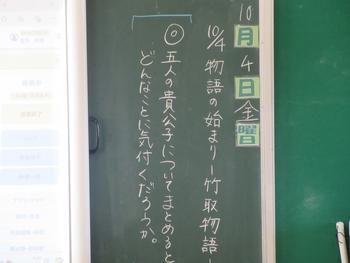 10月4日金曜
10/4 物語の始まり―竹取物語―
◎五人の貴公子についてまとめると
どんなことに気付くだろうか。